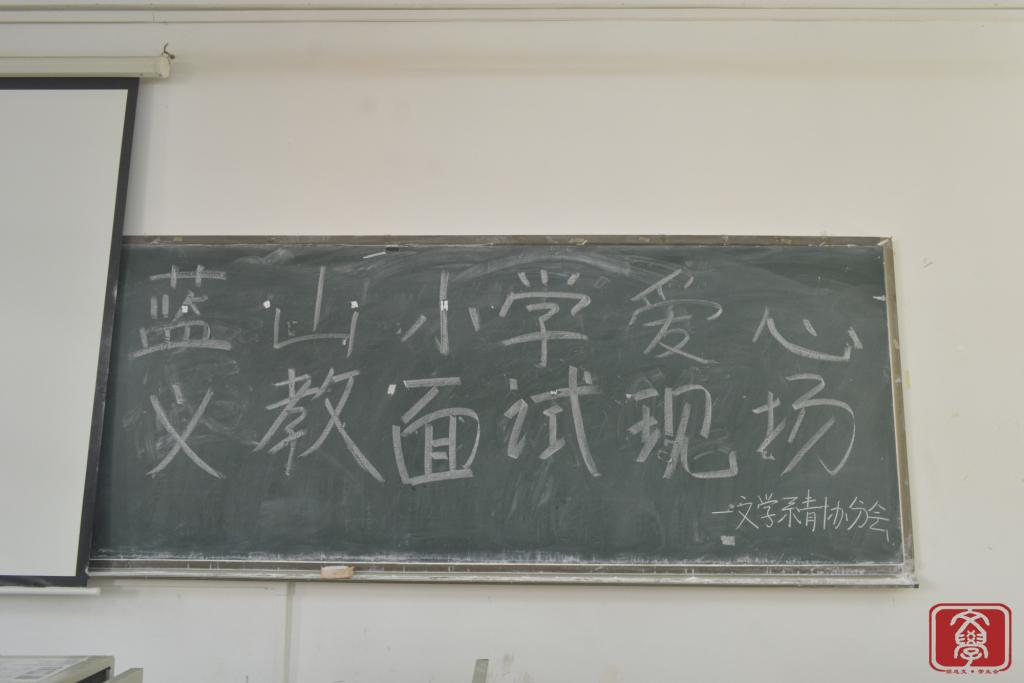 蓝山小学爱心
义教面试现场
—文学系青协分会
文學